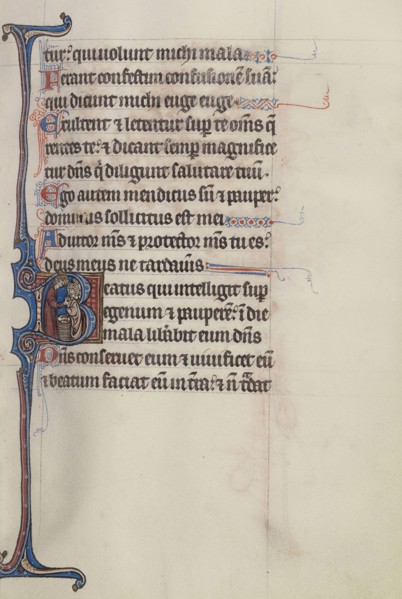 tur: qui uolunt michi mala.
Ferant confestim confusionē suā:
qui dicunt michi euge euge.
Exultent ⁊ letentur sup te om̄s q̄
rentes te: ⁊ dicant semp magnifice
tur dn̄s q̇ diligunt salutare tuū.
Ego autem mendicus sū ⁊ pauper:
dominus sollicitus est mei.
Adiutor m̄s ⁊ protector m̄s tu es:
deus meus ne tardaueris.
Beatus qui intelligit sup
egenum ⁊ pauperē: ī die
mala lib̄abit eum dn̄s
Dn̄s conseruet eum ⁊ uiuificet eū
⁊ beatum faciat eū in t̄ra: ⁊ n̄ t̄dat